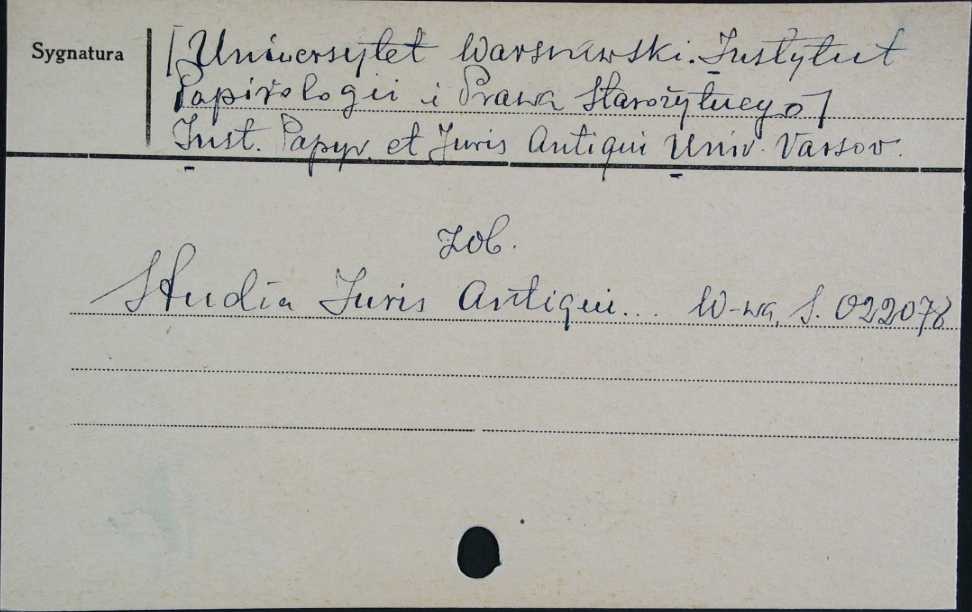 Sygnatura
[Uniwersytet Warszawski. Instytut
Papirologii i Prawa Starożytnego]
Inst. Papyr. et Juris Antiqui Univ. Varsov.
zob.
Studia Juris Antiqui... W-wa, S. 022078